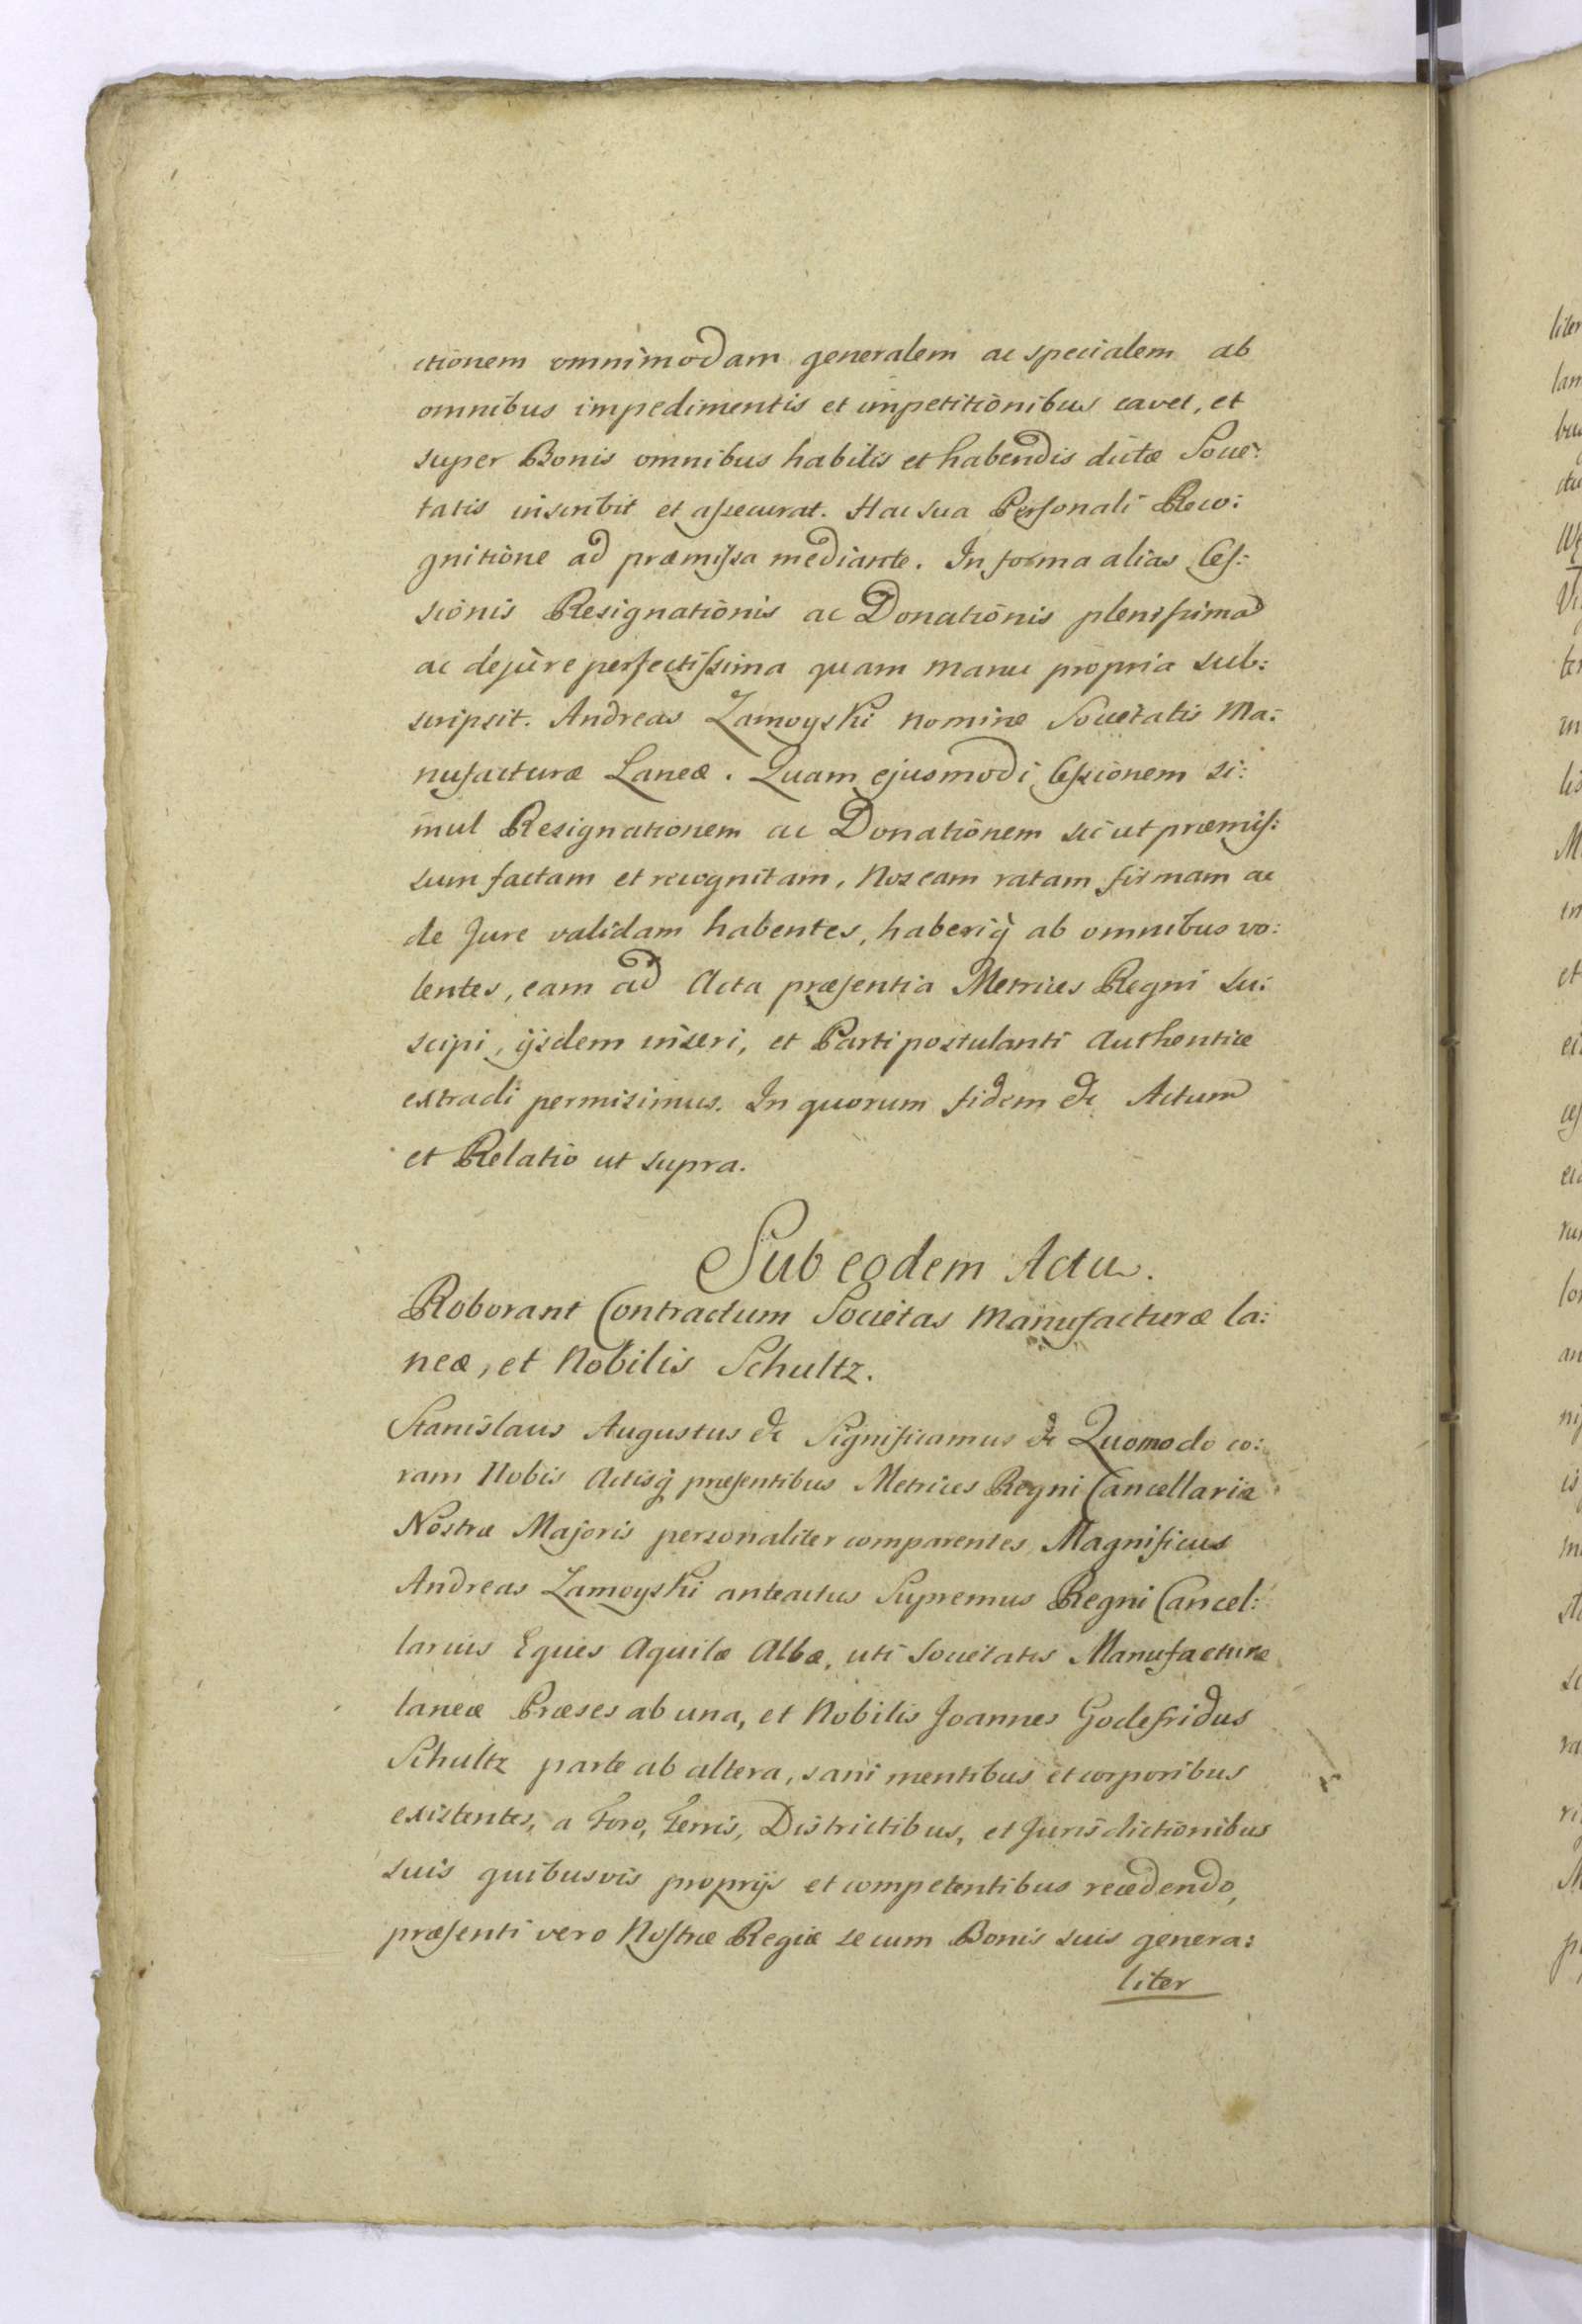 ctionem omnimodam generalem ac specialem ab
omnibus impedimentis et impetitionibus cavet, et
super Bonis omnibus habitis et habendis dictæ Socie:
tatis inscribit et aſsecurat. Hac sua Perſonali Reco:
gnitione ad præmiſsa mediante. In forma alias Ceſ:
sionis Resignationis ac Donationis pleniſsima
ac dejure perfectiſsima quam manu propria sub:
scripsit. Andreas Zamoyski nomine Societatis Ma:
nufacturæ Laneæ. Quam ejusmodi Ceſsionem si:
mul Resignationem ac Donationem sic ut præmiſ:
sum factam et recognitam, Nos eam ratam firmam ac
de Jure validam habentes, haberiq̃ ab omnibus vo:
lentes, eam ad Acta præſentia Metrices Regni su:
scipi, ijsdem inseri, et Parti postulanti Authentice
extradi permisimus. In quorum fidem &c Actum
et Relatio ut supra.
Sub eodem Actu.
Roborant Contractum Societas Manufacturæ la:
neæ, et Nobilis Schultz.
Stanislaus Augustus &c Significamus &c Quomodo co:
ram Nobis Actisq̃ præſentibus Metrices Regni Cancellariæ
Nostræ Majoris personaliter comparentes Magnificus
Andreas Zamoyski anteactus Supremus Regni Cancel:
larius Eques Aquilæ Albæ, uti Societatis Manufacturæ
laneæ Præses ab una, et Nobilis Joannes Godefridus
Schultz parte ab altera, sani mentibus et corporibus
existentes, a Foro, Terris, Districtibus, et Jurisdictionibus
suis quibusvis proprijs et competentibus recedendo,
præſenti vero Noſtræ Regiæ se cum Bonis suis genera:
liter